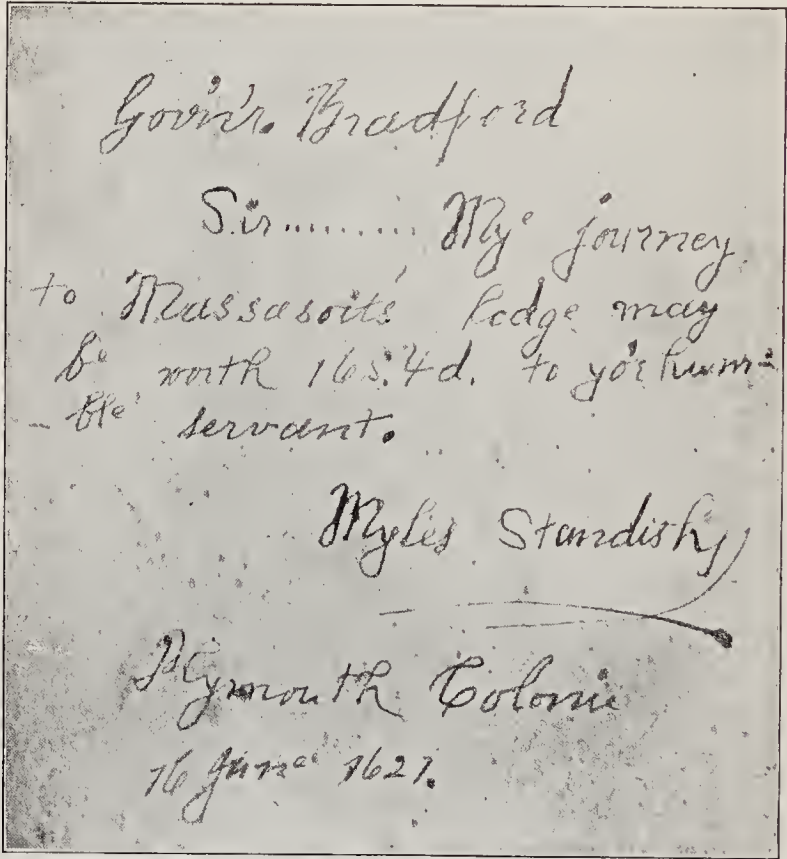 Gov'n'r. Bradford
Sir......... My journey
to Massasoits' lodge may
be worth 16s.4d. to yo'r hum-
-ble servant.
Myles Standish
Plymouth Colonie
16 June 1621.